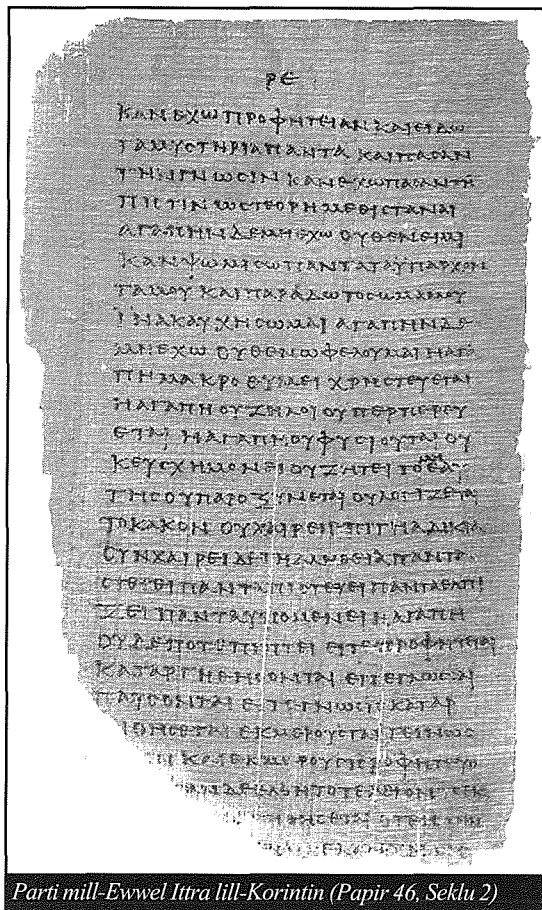 ΡΕ
ΚΑΝΕΧΩΠΡΟΦΗΤΕΙΑΝΚΑΙΕΙΔΩ
ΤΑΜΥϹΤΗΡΙΑΠΑΝΤΑΚΑΙΠΑϹΑΝ
ΤΗΝΓΝΩϹΙΝΚΑΝΕΧΩΠΑϹΑΝΤΗ
ΠΙϹΤΙΝΩϹΤΕΟΡΗΜΕΘΙϹΤΑΝΑΙ
ΑΓΑΠΗΝΔΕΜΗΕΧΩΟΥΘΕΝΕΙΜΙ
ΚΑΝΨΩΜΙϹΩΠΑΝΤΑΤΑΥΠΑΡΧΟΝ
ΤΑΜΟΥΚΑΙΠΑΡΑΔΩΤΟϹΩΜΑΜΟΥ
ΙΝΑΚΑΥΧΗϹΩΜΑΙΑΓΑΠΗΝΔΕ
ΜΗΕΧΩΟΥΘΕΝΩΦΕΛΟΥΜΑΙΗΑΓΑ
ΠΗΜΑΚΡΟΘΥΜΕΙΧΡΗϹΤΕΥΕΤΑΙ
ΗΑΓΑΠΗΟΥΖΗΛΟΙΟΥΠΕΡΠΕΡΕΥ
ΕΤΑΙΗΑΓΑΠΗΟΥΦΥϹΙΟΥΤΑΙΟΥ
ΚΕΥϹΧΗΜΟΝΕΙΟΥΖΗΤΕΙΤΟΕΑΥ
ΤΗϹΟΥΠΑΡΟΞΥΝΕΤΑΙΟΥΛΟΓΙΖΕΤΑΙ
ΤΟΚΑΚΟΝΟΥΧΑΙΡΕΙΕΠΙΤΗΑΔΙΚΙΑ
ϹΥΝΧΑΙΡΕΙΔΕΤΗΑΛΗΘΕΙΑΠΑΝΤΑ
ϹΤΕΓΕΙΠΑΝΤΑΠΙϹΤΕΥΕΙΠΑΝΤΑΕΛΠΙ
ΖΕΙΠΑΝΤΑΥΠΟΜΕΝΕΙΗΑΓΑΠΗ
ΟΥΔΕΠΟΤΕΠΙΠΤΕΙΕΙΤΕΠΡΟΦΗΤΕΙΑΙ
ΚΑΤΑΡΓΗΘΗϹΟΝΤΑΙΕΙΤΕΓΛΩϹϹΑΙ
ΠΑΥϹΟΝΤΑΙΕΙΤΕΓΝΩϹΙϹΚΑΤΑΡ
Parti mill-Ewwel Ittra lill-Korintin (Papir 46, Seklu 2)